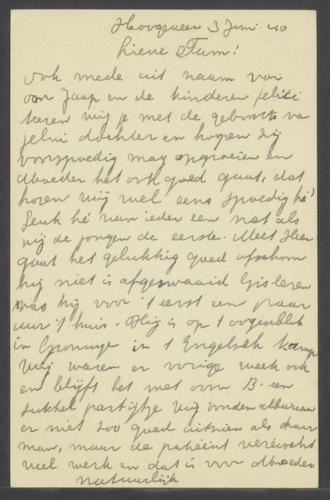 Hoogeveen 3 Juni 40
Lieve Tum!
Ook mede uit naam van
oom Jaap en de kinderen felici
teren wij je met de geboorte van
jelui dochter en hopen zij
voorspoedig mag opgroeien en
Moeder het ook goed gaat, dat
horen wij wel eens spoedig hè!
Leuk hé van ieder een net als
wij de jongen de eerste. Met
gaat het gelukkig goed ofschoon
hij niet is afgezwaaid Gisteren
was hij voor 't eerst een paar
uur 't huis. Hij is op 't oogenblik
in Groningen in 't Engelsch kamp
Wij waren er vorige week ook
en blijft het met oom B. een
sukkel partijtje wij vonden
er niet zoo goed uitzien als haar
man, maar de patiënt vereischt
veel werk en dat is voor Moeder
natuurlijk